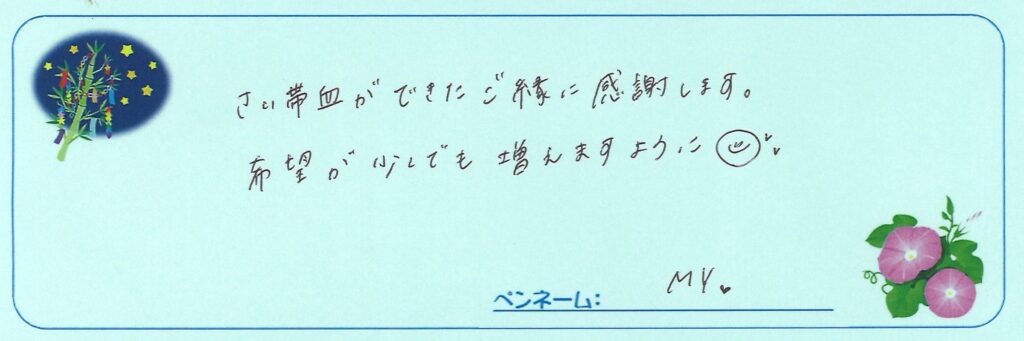 さい帯血ができたご縁に感謝します。
希望が少しでも増えますように
ペンネーム: MY